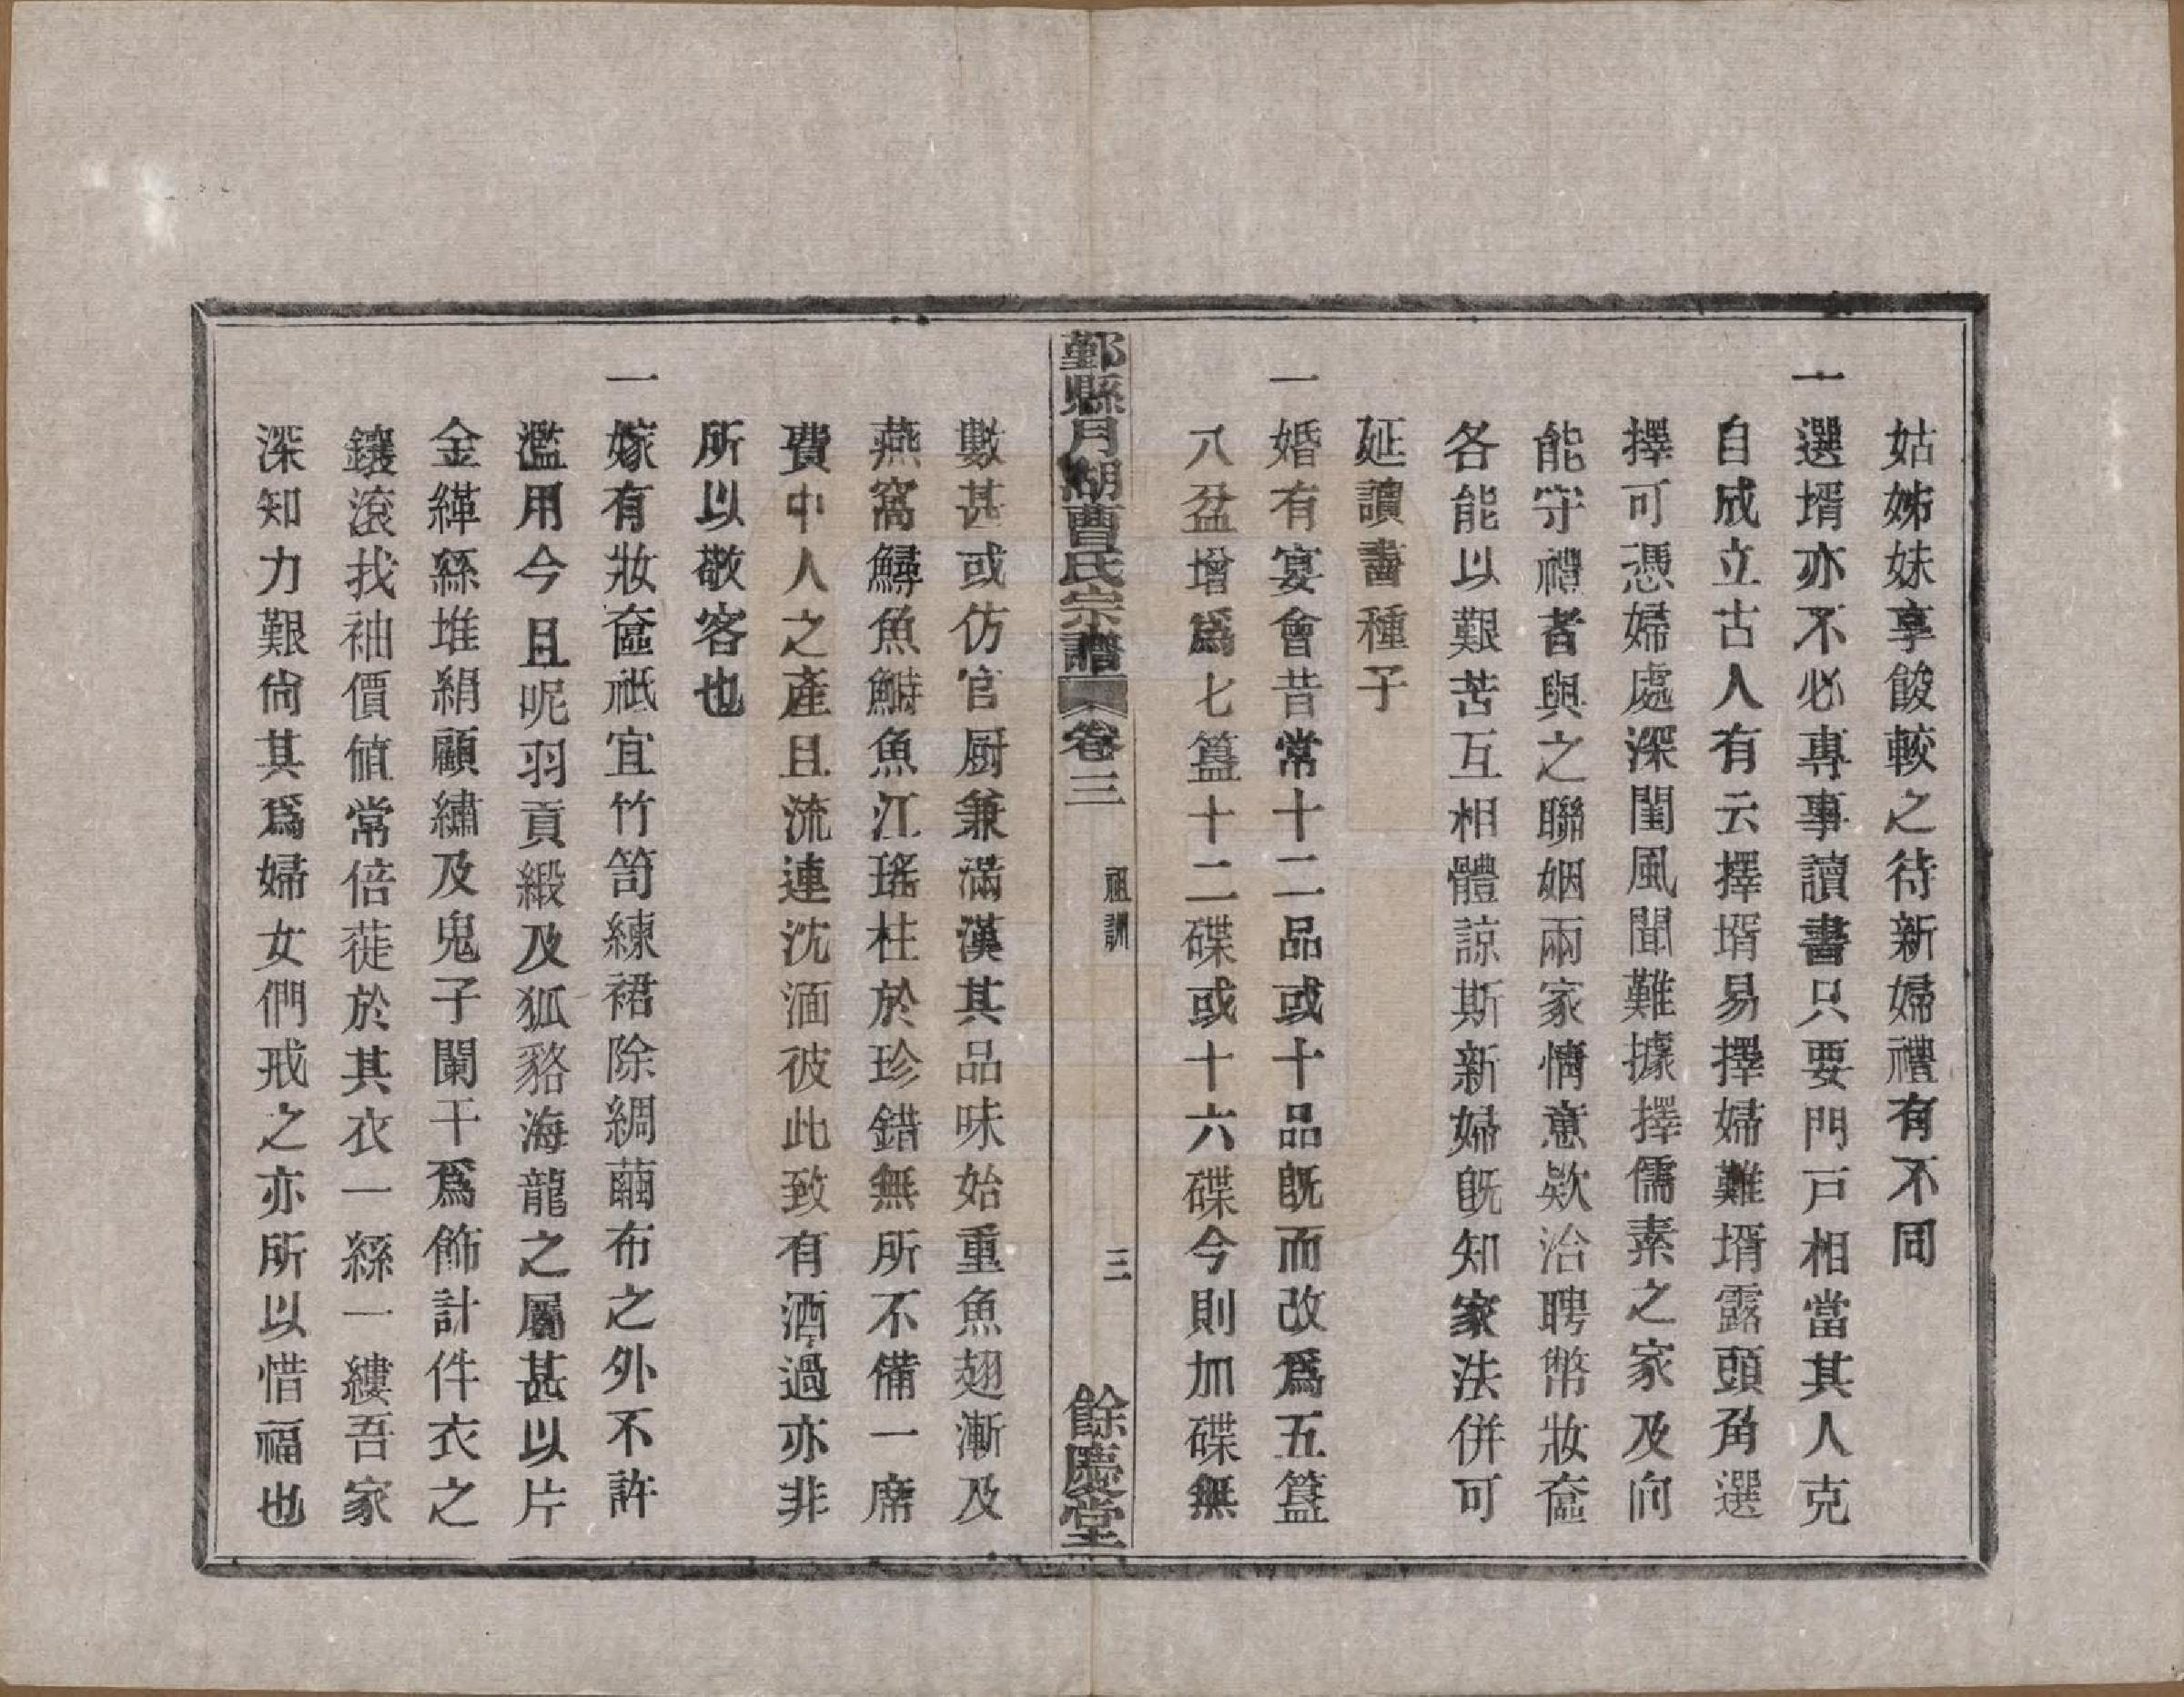 姑姊妹享餕較之待新婦禮有不同
一選壻亦不必專事讀書只要門戸相當其人克
自成立古人有云擇壻易擇婦難壻露頭角選
擇可憑婦處深閨風聞難據擇儒素之家及向
能守禮者與之聯姻兩家情意欵洽聘幣妝奩
各能以艱苦互相體諒斯新婦旣知家法併可
延讀書種子
一婚有宴會昔常十二品或十品旣而改爲五簋
八盆增爲七簋十二碟或十六碟今則加碟無
鄞縣月湖曹氏宗譜 卷三 祖訓 三 餘慶堂
數甚或仿官厨兼滿漢其品味始重魚翅漸及
燕窩鱘魚鰣魚江瑤柱於珍錯無所不備一席
費中人之產且流連沈湎彼此致有酒過亦非
所以敬客也
一嫁有妝奩祇宜竹笥練裙除綢繭布之外不許
濫用今且呢羽貢緞及狐貉海龍之屬甚以片
金緙絲堆絹顧繡及鬼子闌干爲飾計件衣之
鑲滾找袖價値常倍蓰於其衣一絲一縷吾家
深知力艱尙其爲婦女們戒之亦所以惜福也